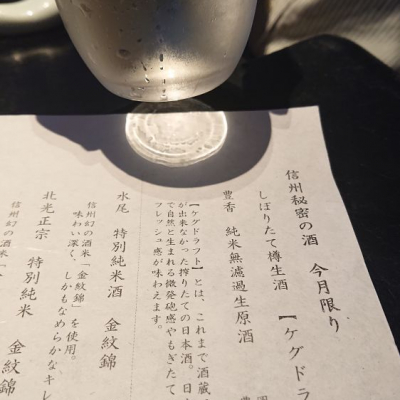 信州秘密の酒 今月限り
しぼりたて樽生酒 【ケグドラ
豊香 純米無濾過生原酒
【ケグドラフト】とは、これまで酒蔵
が出来なかった搾りたての日本酒。日
で自然と生まれる微発砲感やもぎたて
フレッシュ感が味わえます。
水尾 特別純米酒 金紋錦
信州幻の酒米「金紋錦」を使用。
味わい深く、しかもなめらかなキレ
北光正宗 特別純米 金紋錦
信州幻の酒米「